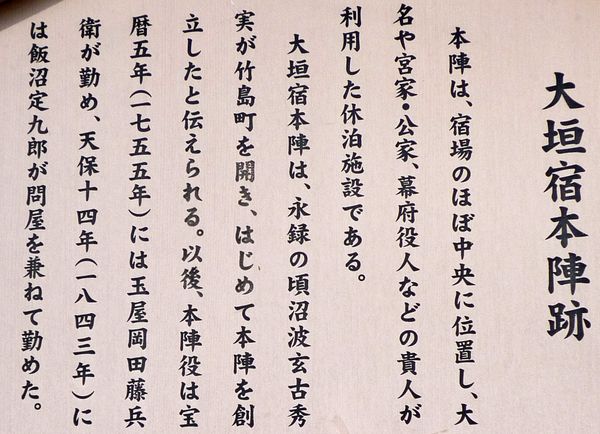 大垣宿本陣跡
本陣は、宿場のほぼ中央に位置し、大
名や宮家・公家、幕府役人などの貴人が
利用した休泊施設である。
大垣宿本陣は、永録の頃沼波玄古秀
実が竹島町を開き、はじめて本陣を創
立したと伝えられる。以後、本陣役は宝
暦五年(一七五五年)には玉屋岡田藤兵
衛が勤め、天保十四年(一八四三年)に
は飯沼定九郎が問屋を兼ねて勤めた。